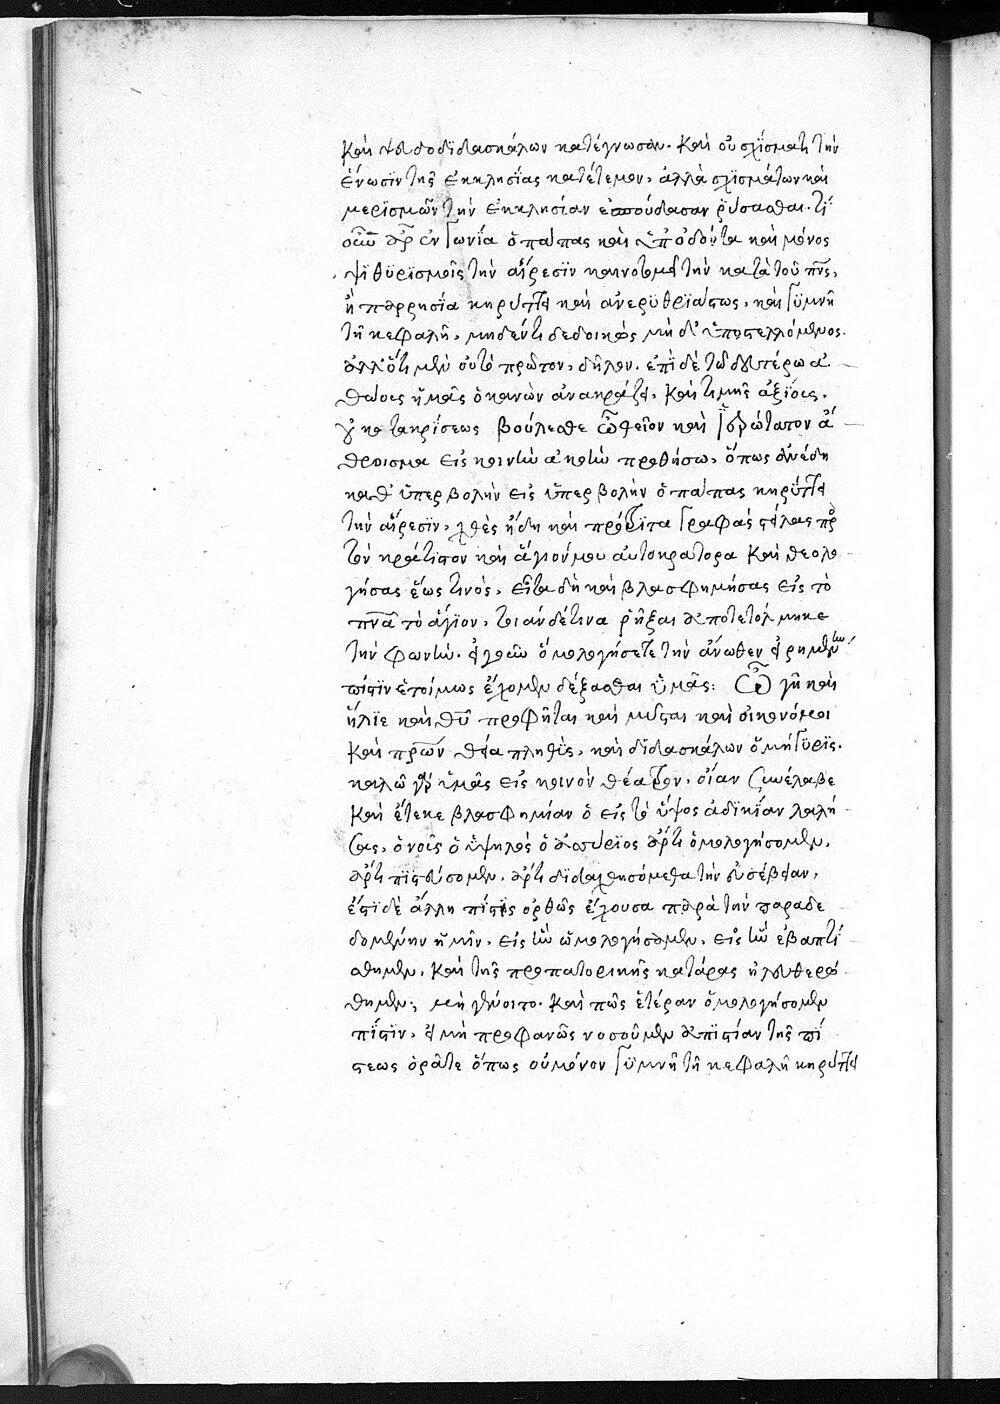 καὶ ψευδοδιδασκάλων κατέγνωσαν. καὶ οὐ σχίσματι τὴν
ἕνωσϊν τῆς ἐκκλησίας κατέτεμον, ἀλλὰ σχϊσμάτων καὶ
μερϊσμῶν τὴν ἐκκλησίαν ἐσπούδασαν ῥύσασθαι. τί
οὖν ἂρ ἐν γωνία ὁ πάπας καὶ ὑπ ὀδόντα καὶ μόνος
ψϊθϋρϊσμοῖς τὴν αἵρεσϊν καινοτομεῖ τὴν κατὰ τοῦ πν̅ς,
ἢ παρρησία κηρύττει καὶ ἀνερϋθρϊάστως, καὶ γϋμνῆ
τῆ κεφαλῆ, μηδέν τι δεδοικὼς μὴ δ' ὑποστελλόμενος.
ἀλλ' ὅτι μὲν οὐ τὸ πρῶτον, δῆλον. ἐπὶ δὲ τῶ δευτέρω ἀ
θώους ἡμᾶς ὁ κανὼν ἀνακράζει, καὶ τιμῆς ἀξϊοῖς,
οὐ κατακρίσεως βούλεσθε ὦ θεῖον καὶ ἱερώτατον ἄ
θροισμα εἰς κοινὴν ἀκοὴν προθήσω, ὅπως ἀνέδη
καθ' ὑπερβολὴν εἰς ὑπερβολὴν ὁ πάπας κηρύττει
τὴν αἵρεσϊν, χθὲς ἤδη καὶ πρότρϊτα γραφὰς στείλας πρὸς
τὸν κράτιστον καὶ ἅγιόν μου αὐτοκράτορα καὶ θεολο
γήσας ἕως τινὸς, εἶτα δὴ καὶ βλασφημήσας εἰς τὸ
πν̅α τὸ ἅγϊον, τοιάνδέ τινα ῥῆξαι ἀποτετόλμηκε
τὴν φωνήν. εἰ γοῦν ὁμολογήσετε τὴν ἄνωθεν εἰρημένην
πίστϊν ἑτοίμως ἔχομεν δέξασθαι ὑμᾶς: Ὦ γῆ καὶ
ἥλϊε καὶ θυ̅ προφῆται καὶ μύσται καὶ οἰκονόμοι
καὶ πρ̅ων θεία πληθὺς, καὶ δϊδασκάλων ὁμήγϋρϊς.
καλῶ γὰρ ὑμᾶς εἰς κοινὸν θέατρον, οἵαν συνέλαβε
καὶ ἔτεκε βλασφημίαν ὁ εἰς τὸ ὕψος ἀδϊκΐαν λαλή
σας, ὁ νοῦς ὁ ὑψηλὸς ὁ ἀσσύρϊος ἄρτι ὁμολογήσομεν,
ἄρτι πϊστεύσομεν. ἄρτι δϊδαχθησόμεθα τὴν εὐσέβειαν,
ἔστϊ δὲ ἄλλη πίστις ὀρθῶς ἔχουσα παρὰ τὴν παραδε
δομένην ἡμῖν, εἰς ἣν ὡμολογήσαμεν, εἰς ἣν ἐβαπτί
σθημεν, καὶ τῆς προπατορικῆς κατάρας ἠλευθερώ
θημεν; μὴ γένοιτο. καὶ πῶς ἑτέραν ὁμολογήσομεν
πίστϊν, εἰ μὴ προφανῶς νοσοῦμεν ἀπϊστίαν τῆς πί
στεως ὁρᾶτε ὅπως οὐ μόνον γϋμνῆ τῆ κεφαλῆ κηρύττει